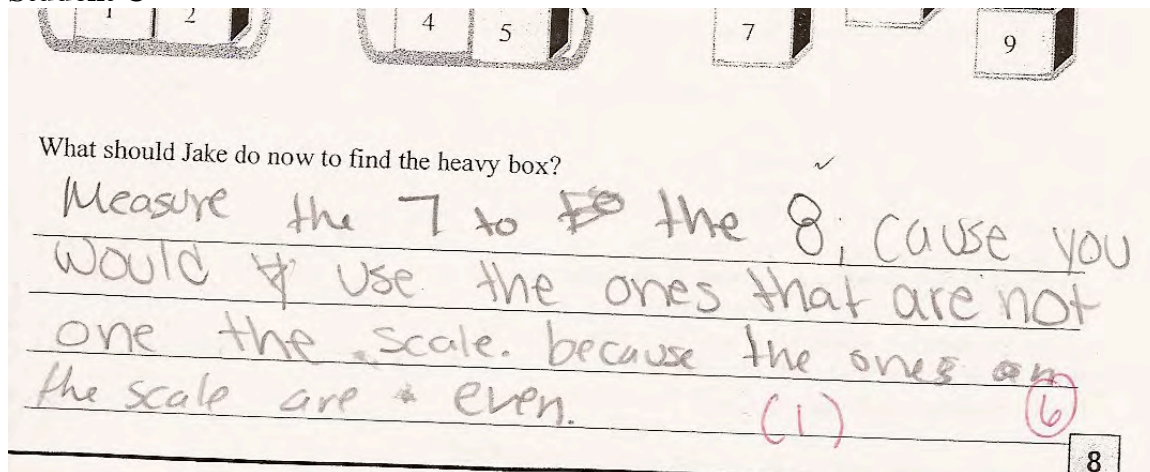 1 2 4 5 7 9
What should Jake do now to find the heavy box?
Measure the 7 to the 8; cause you
would use the ones that are not
one the scale. because the ones on
the scale are even. (1) 6
8